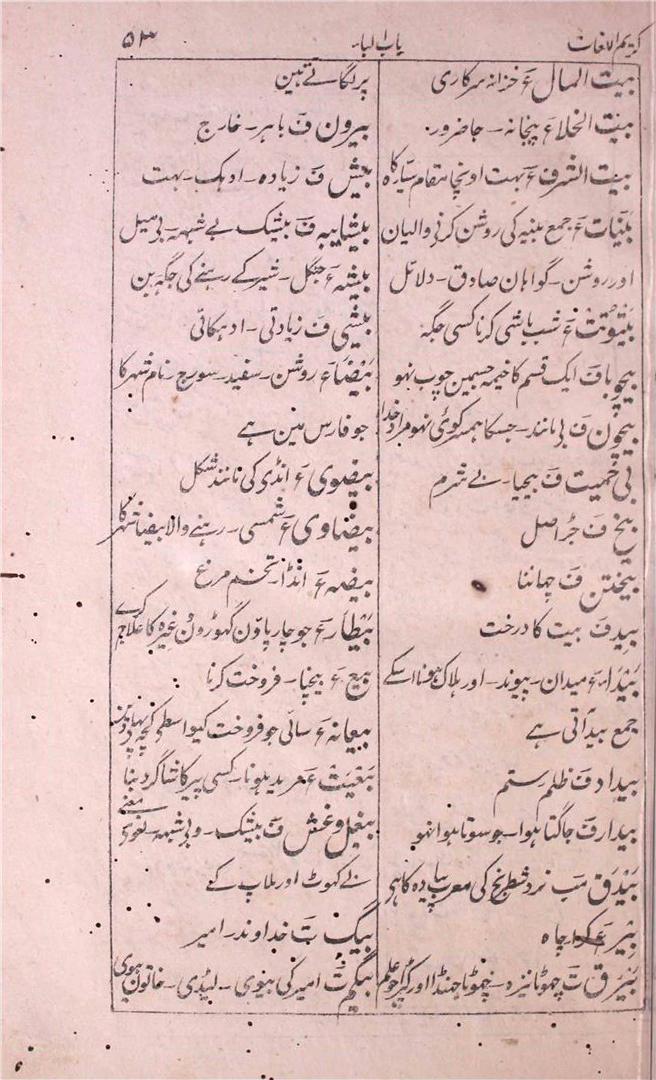 کریم اللغات
باب البا
۵۳
بیت المال ء خزانہ سرکاری
بیت الخلاء ء پیخانہ۔ جا ضرور۔
بیت الشرف ء بہت اونچا مقام ستارہ کا
بینات ء جمع بینہ کی روشن کرنی والیان
اور روشن۔ گواہان صادق۔ دلائل
بیتوتت ء شب باشی کرنا کسی جگہ
بیچوبا ف ایک قسم کا خیمہ جسمین چوب نہو
بیچون ف بی مانند۔ جسکا ہمسر کوئی نہو مراد خدا
بی حمیت ف بیحیا۔ بے شرم
بیخ ف جڑ اصل
بیختن ف چھاننا
بید ف بیت کا درخت
بیداء ء میدان۔ پیوند۔ اور ہلاک ہونا اسکے
جمع بیدا آتی ہے
بیداد ف ظلم۔ ستم
بیدار ف جاگتا ہوا۔ جو سوتا ہوا نہو
بیدق مب نرد شطرنج کی معرب پیادہ کا ہی
بئر ء چاہ
بیرق ت چھوٹا نیزہ۔ چھوٹا جھنڈا اور
پر لگاتے ہین
بیرون ف باہر۔ خارج
بیش ف زیادہ۔ ادہک۔ بہت
بیشایبہ ف بیشک بے شبہہ۔ بی میل
بیشہ ء جنگل۔ شیر کے رہنے کی جگہ بن
بیشی ف زیادتی۔ ادہکائی
بیضاء ء روشن۔ سفید۔ سورج۔ نام شہر کا
جو فارس مین ہے
بیضوی ء انڈی کی مانند شکل
بیضاوی ء شمسی۔ رہنے والا بیضا شہر کا
بیضہ ء انڈا۔ تخم مرغ
بیطار ء جو چارپاؤن گھوڑون وغیرہ کا علاج کرے
بیع ء بیچنا۔ فروخت کرنا
بیعانہ ء سائی جو فروخت کیواسطی کچھ پہلے دیوین
بیعت ء مرید ہونا۔ کسی پیر کا شاگرد بننا
بیغل وغش ف بیشک۔ وبی شبہہ۔ لغوی معنے
بے کھوٹ اور ملاپ کے
بیگ ت خداوند۔ امیر
بیگم ت امیر کی بیوی۔ لیڈی۔ خاتون بیوی